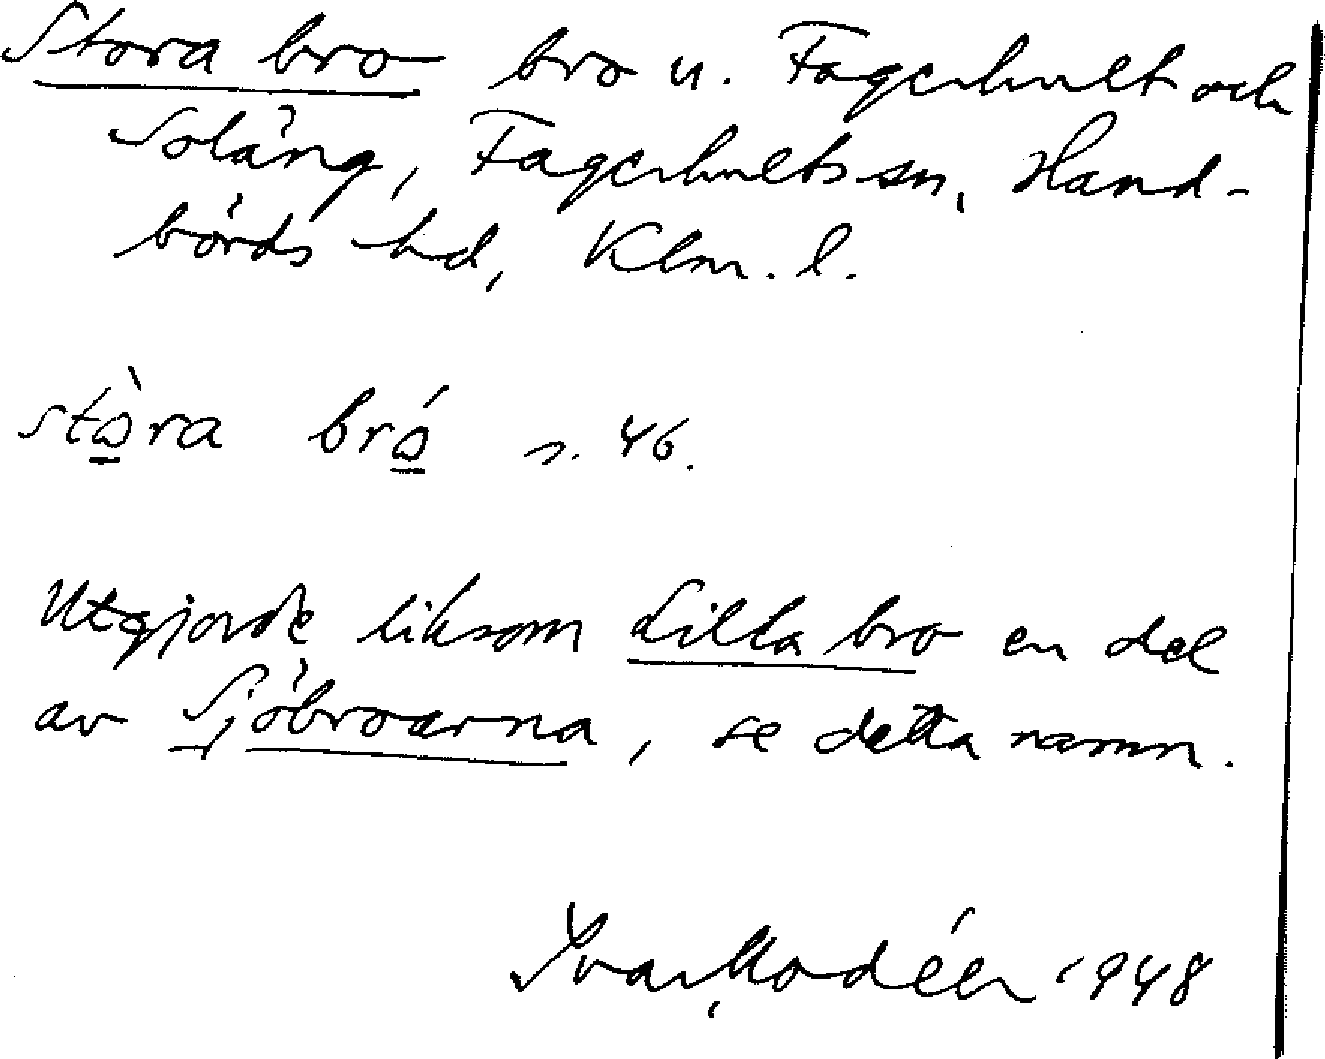 Stora bro bro u. Fagerhult och
Soläng, Fagerhults sn, Hand-
börds hd, Klm. l.
stò̱ra bró̱ s. 46.
Utgjorde liksom Lilla bro en del
av Sjöbroarna, se detta namn.
Ivar Modéer 1948